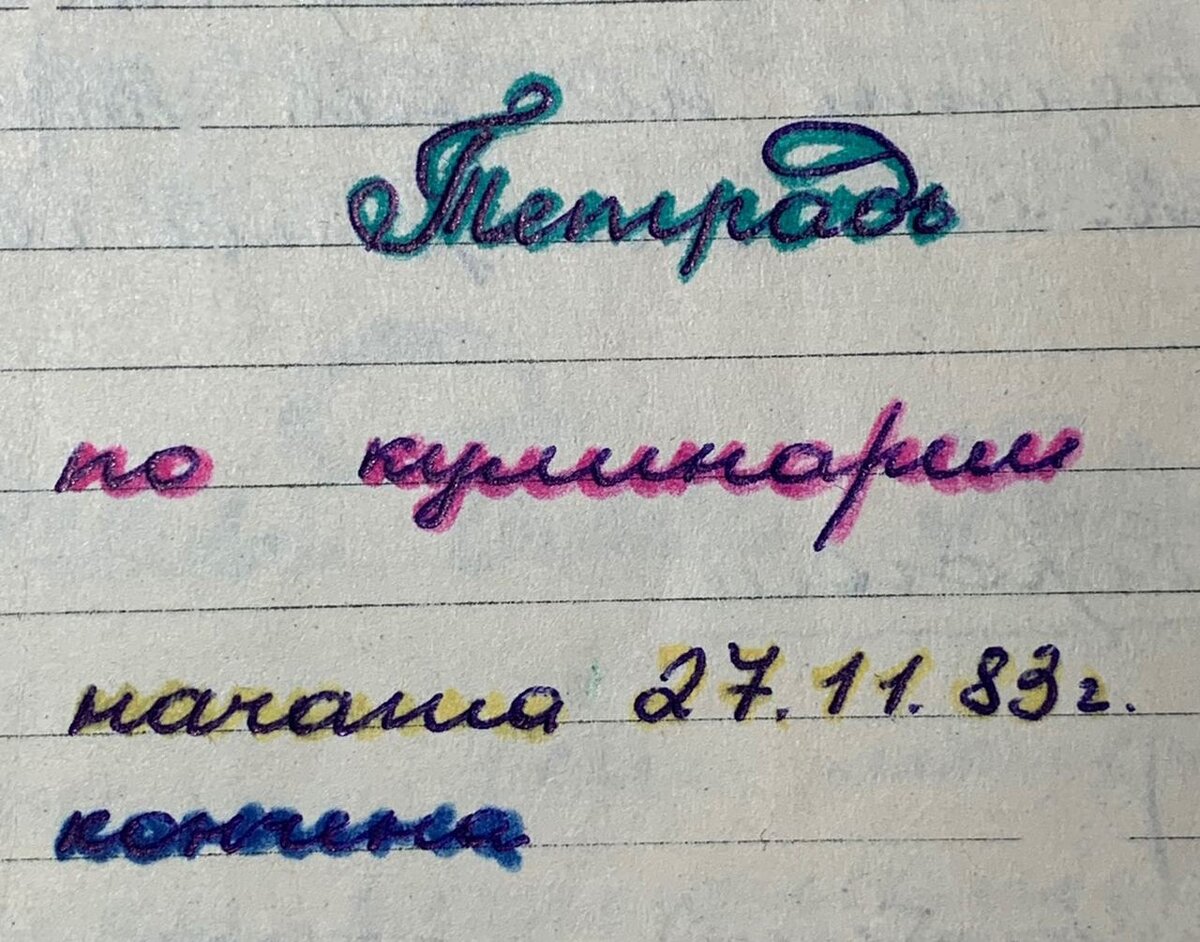 Тетрадь
по кулинарии
начата 27.11.83г.
кончена